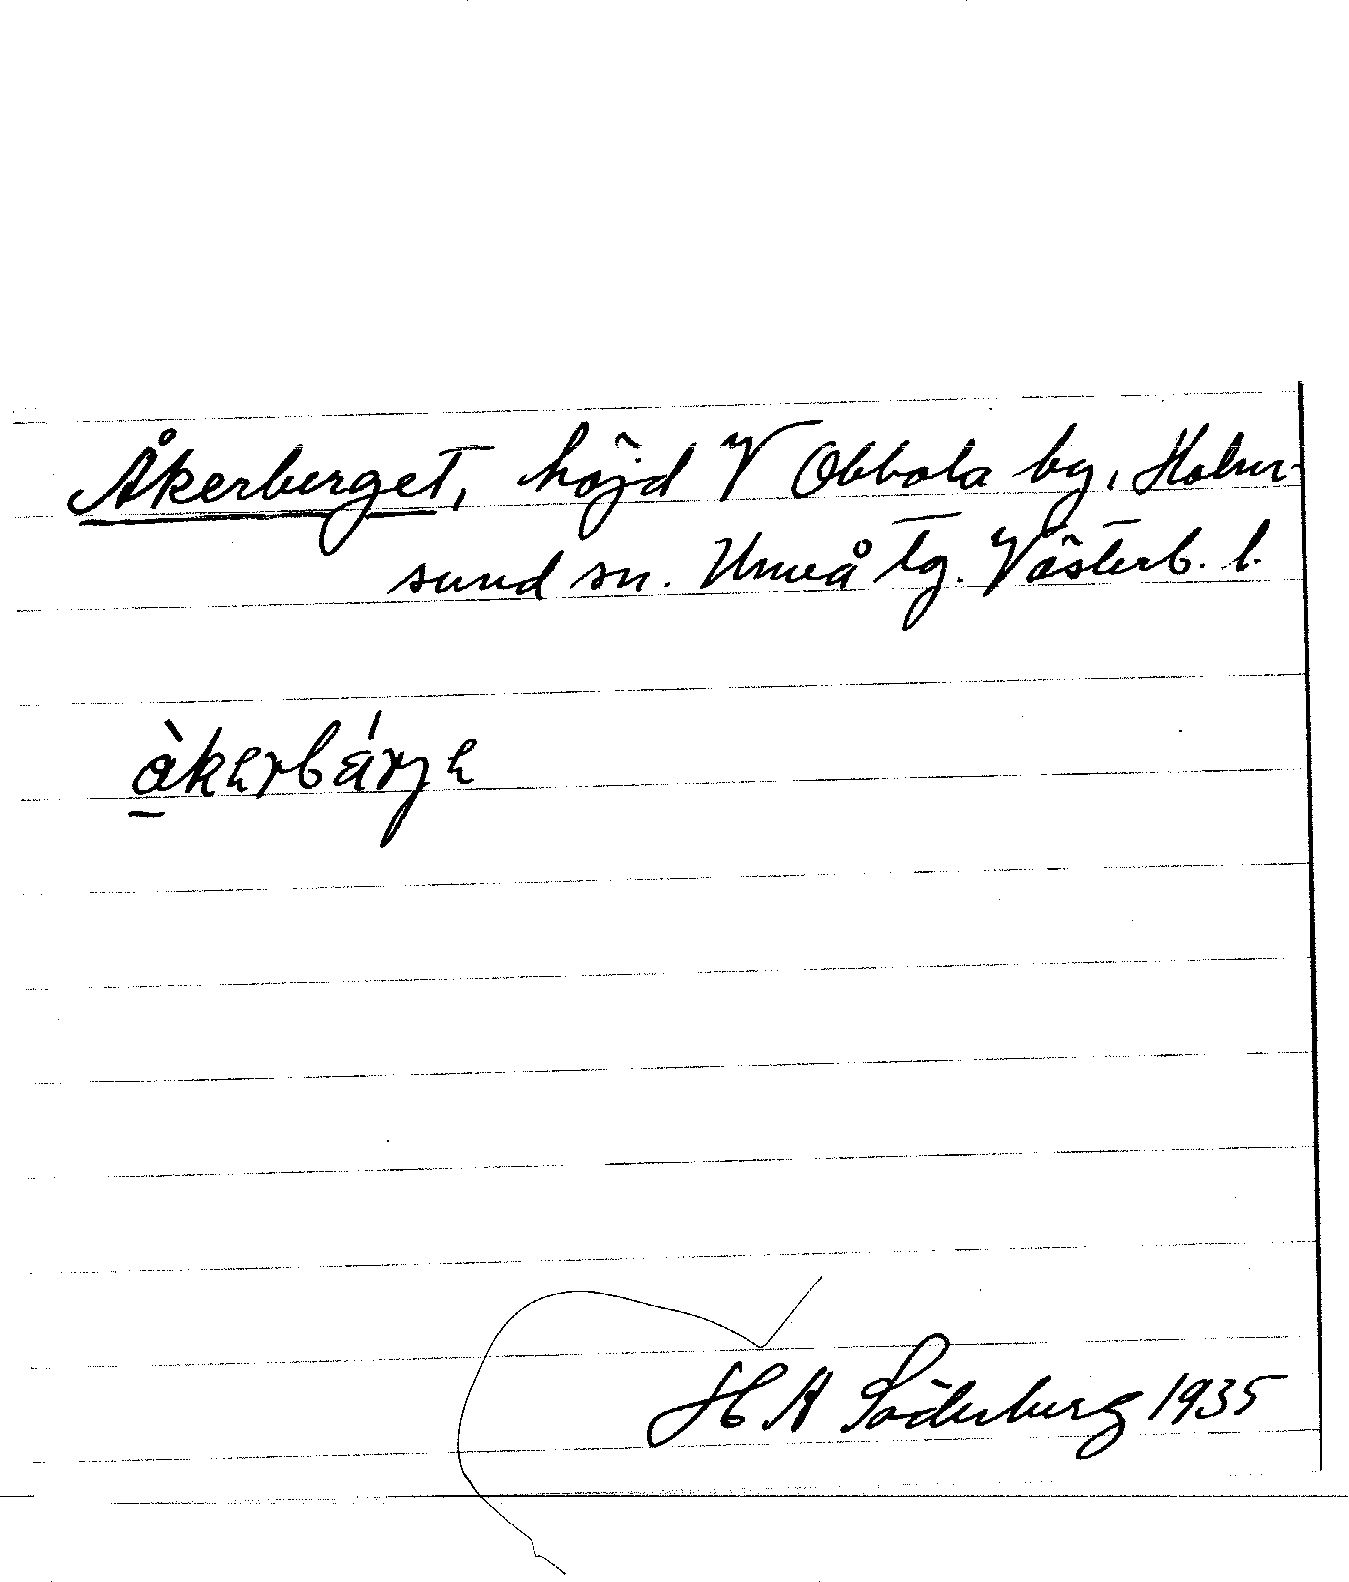 Åkerberget, höjd V Obbola by, Holm-
sund sn. Umeå tg. Västerb. l.
à̱kerbárje
H A Söderberg 1935